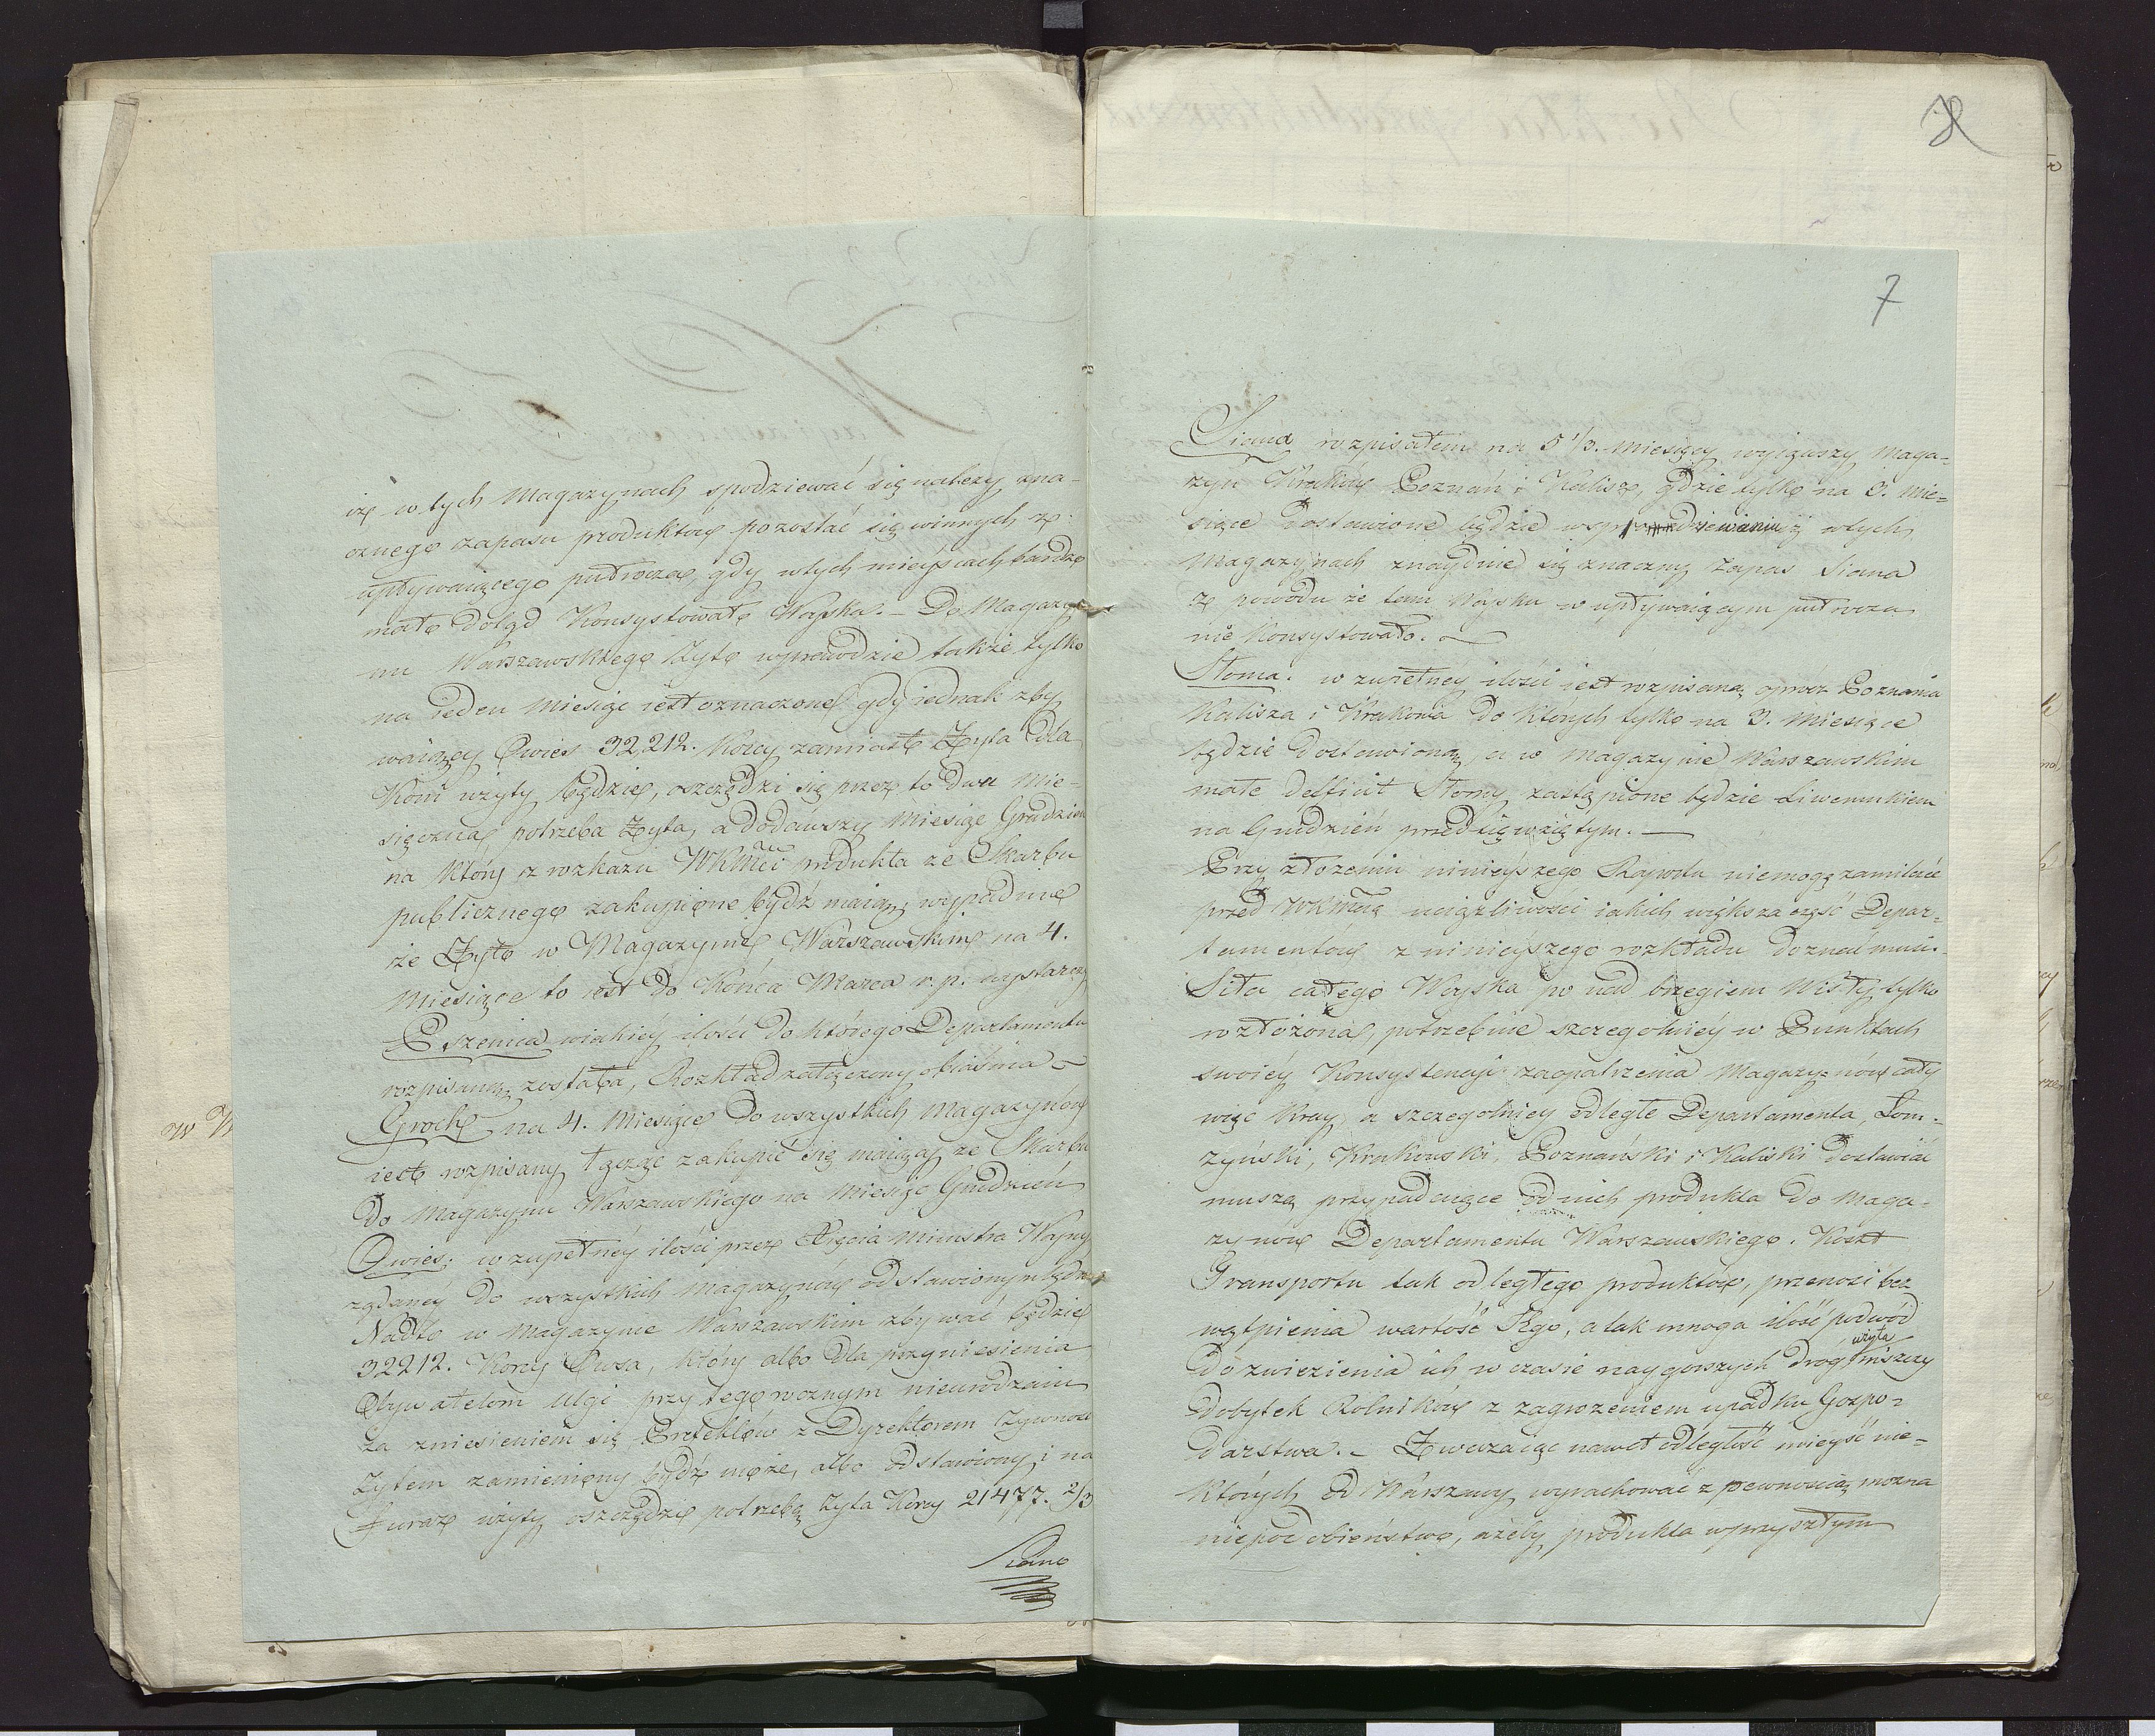 iż w tych Magazynach spodziewać się należy zna-
cznego zapasu produktow pozostać się winnych z
upływaiącego pułrocza, gdy w tych mieyscach bardzo
mało dotąd Konsystowało Woyska. – Do Magazy-
nu Warszawskiego Żyto wprawdzie także tylko
na ieden Miesiąc iest oznaczone gdy iednak zby
waiący Owies 32212. Korcy zamiast Żyta dla
Koni użyty będzie, oszczędzi się przez to dwu Mie-
sięczna potrzeba Żyta, a dodawszy Miesiąc Grudzien
na który z rozkazu WKMci produkta ze Skarbu
publicznego zakupione bydź maią, wypadnie
że Żyto w Magazynie Warszawskim na 4.
Miesiące to iest do Końca Marca r. p. wystarczy
Pszenica w iakiéy ilości do którego Departamentu
rozpisaną została, Rozkład załączony obiaśnia –
Groch na 4. Miesiące do wszystkich Magazynow
iest rozpisany łącząc zakupić się maiący ze Skarbu
do Magazynu Warszawskiego na Miesiąc Grudzień
Owies: w zupełnéy ilości przez Xięcia Ministra Woyny
żądanéy do wszystkich Magazynów odstawionym będzie
Nadto w Magazynie Warszawskim zbywać będzie
32212. Korcy Owsa, który albo dla przyniesienia
Obywatelom ulgi przy tegorocznym nieurodzaiu
za zniesieniem się Prefektow z Dyrektorem Żywnosci
Żytem zamieniony bydź może, albo odstawiony i na
Furaż użyty oszczędzi potrzebę Żyta Korcy 21477. 2/3
Siano
8
7
Siana rozpisałem na 5 1/3. Miesięcy wyiąwszy Maga-
zyn Kraków Poznań i Kalisz, gdzie tylko na 3. Mie-
siące dostawione będzie w spodziewaniu iż w tych
Magazynach znaydzie się znaczny zapas Siana
z powodu że tam Woysko w upływaiącym pułroczu
nie Konsystowało. –
Słoma. w zupełnéy ilości iest rozpisaną oprócz Poznania
Kalisza i Krakowa do których tylko na 3. Miesiące
będzie dostawioną, a w Magazynie Warszawskim
małe defficit Słomy zastąpione będzie Liwerunkiem
na Grudzień przedsięwziętym. –
Przy złożeniu ninieyszego Raportu niemogę zamilczéć
przed WKMcią uciążliwosci iakich większa część Depar-
tamentów z ninieyszego rozkładu doznać musi.
Siła całego Woyska po nad brzegiem Wisły tylko
rozłożona, potrzebuie szczegolniéy w Punktach
swoiéy Konsystencyi zaopatrzenia Magazynów cały
więc Kray, a szczegolniey odległe Departamenta, Łom-
żyński, Krakowski, Poznański i Kaliski dostawiać
muszą przypadaiące od nich produkta do Maga-
zynów Departamentu Warszawskiego. Koszt
Transportu tak odległego produktow, przenosi bez
wątpienia wartość Jego, a tak mnoga ilość podwód
użyta
do zwiezienia ich w czasie naygorszych dróg niszczy
dobytek Rolników z zagrożeniem upadku Gospo-
darstwa. – Zważaiąc nawet odległość mieyść nie-
których od Warszawy, wyrachować z pewnoscią można
niepodobieństwo, ażeby produkta w przyszłym